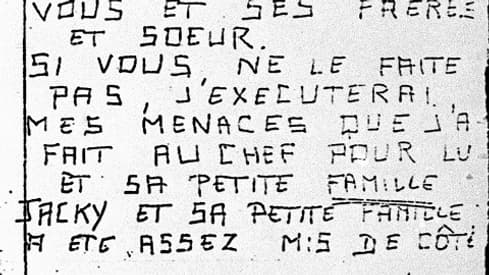 VOUS ET SES FRERES
ET SOEUR.
SI VOUS, NE LE FAITE
PAS, J'EXECUTERAI,
MES MENACES QUE J'A
FAIT AU CHEF POUR LU
ET SA PETITE FAMILLE
JACKY ET SA PETITE FAMILLE
A ETE ASSEZ MIS DE CÔTÉ